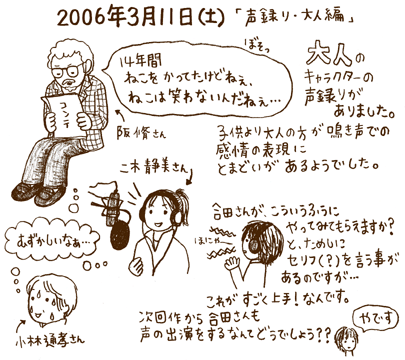 2006年3月11日(土)「声録り・大人編」
ぼそっ
14年間
ねこをかってたけどねぇ、
ねこは笑わないんだねぇ…
コンテ
阪 脩さん
大人の
キャラクターの
声録りが
ありました。
子供より大人の方が鳴き声での
感情の表現に
とまどいが あるようでした。
二木静美さん
むずかしいなぁ…
小林通孝さん
ほにゃ
合田さんが、こういうふうに
やってみてもらえますか?
と、ためしに
セリフ(?)を言う事が
あるのですが…
これが すごく上手!なんです。
次回作から 合田さんも
声の出演をするなんてどうでしょう??
やです